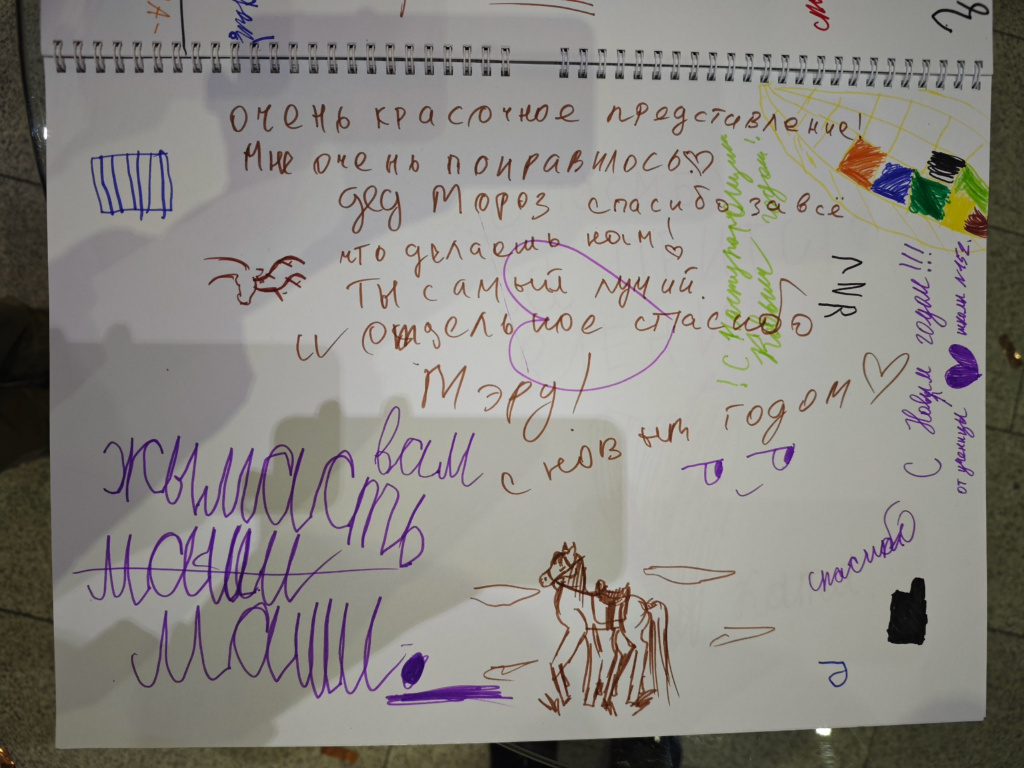 очень красочное представление!
Мне очень понравилось
дед Мороз спасибо за всё
что делаешь нам!
Ты самый лучий.
и отдельное спасибо
Мэру!
с новым годом
вам
маши
маши.
! С Наступающим
Новым годом!
NNR
С Новым годом!!!
от ученицы школы №152.
спасибо